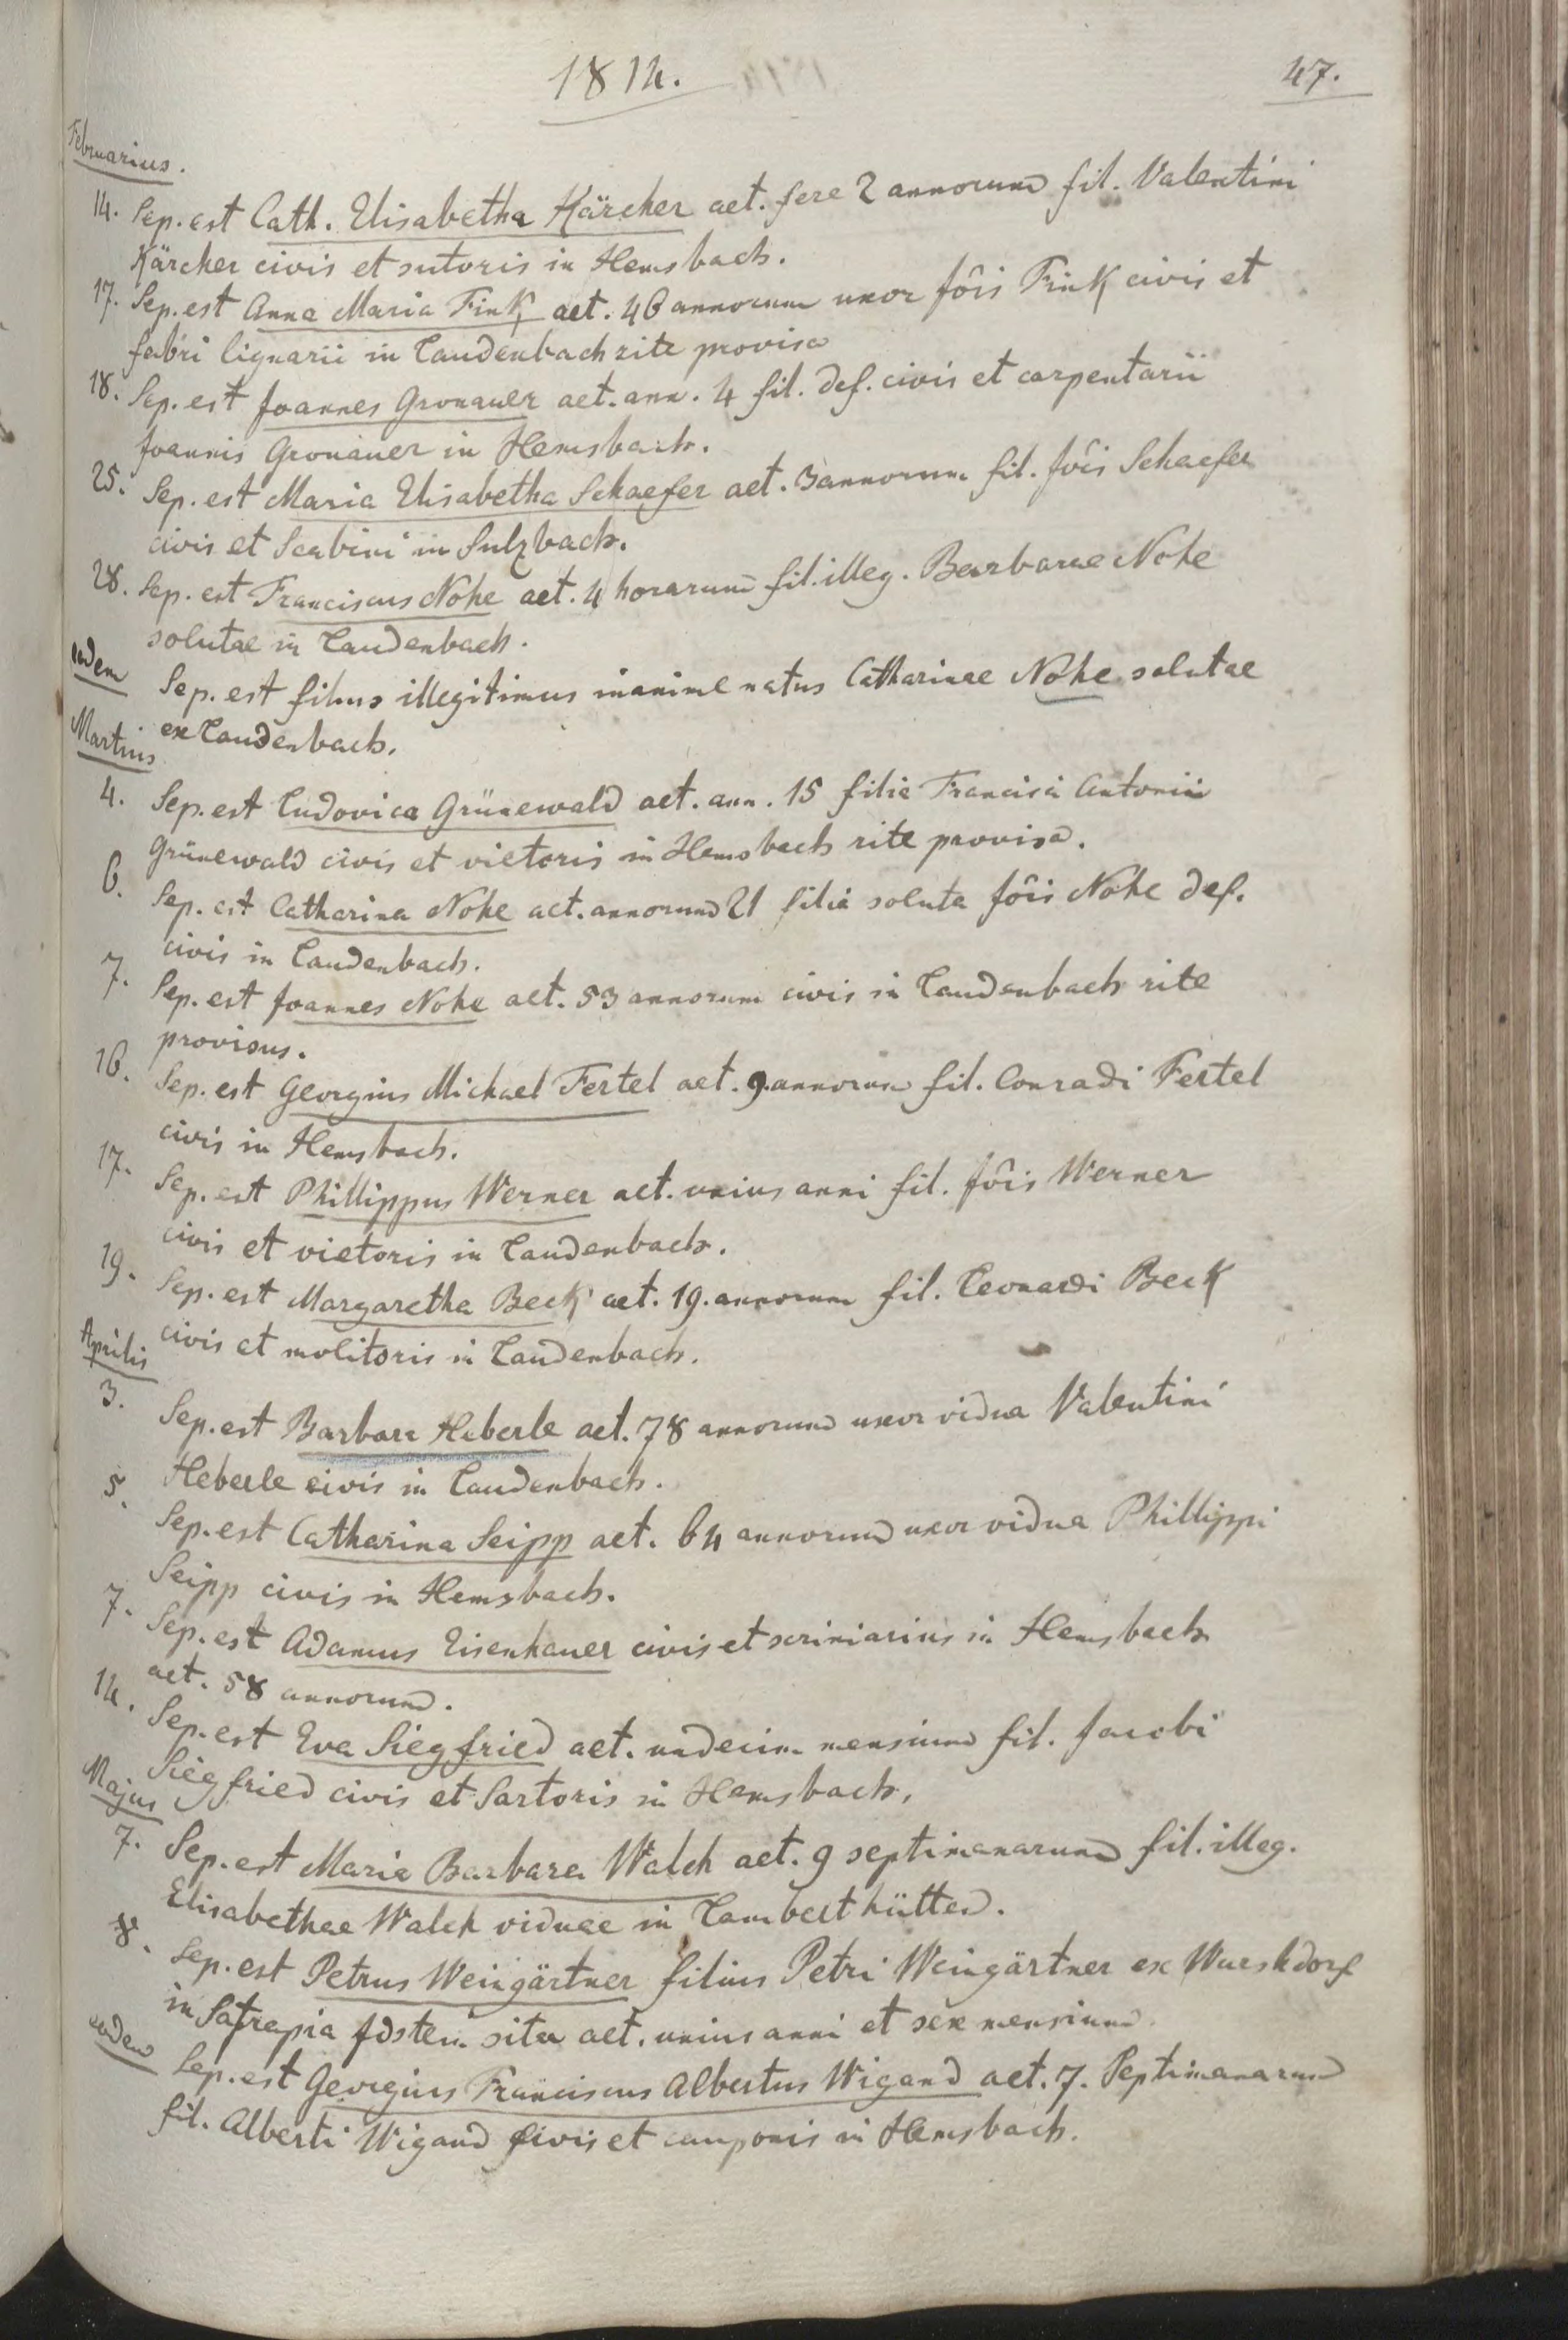 1814.
47.
Februarius.
14. Sep. est Cath. Elisabetha Kärcher aet. fere 2 annorum fil. Valentini
Kärcher civis et sutoris in Hemsbach.
17. Sep. est Anna Maria Fink aet. 46 annorum uxor Jôis Fink civis et
fabri lignarii in Laudenbach rite provisa
18. Sep. est Joannes Gronauer aet. ann. 4 fil. def. civis et carpentarii
Joannis Gronauer in Hemsbach.
25. Sep. est Maria Elisabetha Schaefer aet. 3 annorum fil. Jôis Schaefer
civis et Scabini in Sulzbach.
28. Sep. est Franciscus Nohe aet. 4 horarum fil. illeg. Barbarae Nohe
solutae in Laudenbach.
eadem Sep. est filius illegitimus inanime natus Catharinae Nohe solutae
ex Laudenbach.
Martius
4. Sep. est Ludovica Grünewald aet. ann. 15 filia Francisci Antonii
Grünewald civis et vietoris in Hemsbach rite provisa.
6. Sep. est Catharina Nohe aet. annorum 21 filia soluta Jôis Nohe def.
civis in Laudenbach.
7. Sep. est Joannes Nohe aet. 53 annorum civis in Laudenbach rite
provisus.
16. Sep. est Georgius Michael Fertel aet. 9. annorum fil. Conradi Fertel
civis in Hemsbach.
17. Sep. est Phillippus Werner aet. unius anni fil. Jôis Werner
civis et vietoris in Laudenbach.
19. Sep. est Margaretha Beck aet. 19. annorum fil. Leonardi Beck
civis et molitoris in Laudenbach.
Aprilis
3. Sep. est Barbara Heberle aet. 78 annorum uxor vidua Valentini
Heberle civis in Laudenbach.
5. Sep. est Catharina Seipp aet. 64 annorum uxor vidua Phillippi
Seipp civis in Hemsbach.
7. Sep. est Adamus Eisenhauer civis et scriniarius in Hemsbach
aet. 58 annorum.
14. Sep. est Eva Siegfried aet. undecim mensium fil. Jacobi
Siegfried civis et Sartoris in Hemsbach.
Majus
7. Sep. est Maria Barbara Walch aet. 9 septimanarum fil. illeg.
Elisabethae Walch viduae in Lamberthütten.
8. Sep. est Petrus Weingärtner filius Petri Weingärtner ex
in Satrapia sita aet. unius anni et sex mensium.
eadem Sep. est Georgius Franciscus Albertus Wigand aet. 7. Septimanarum
fil. Alberti Wigand civis et cauponis in Hemsbach.